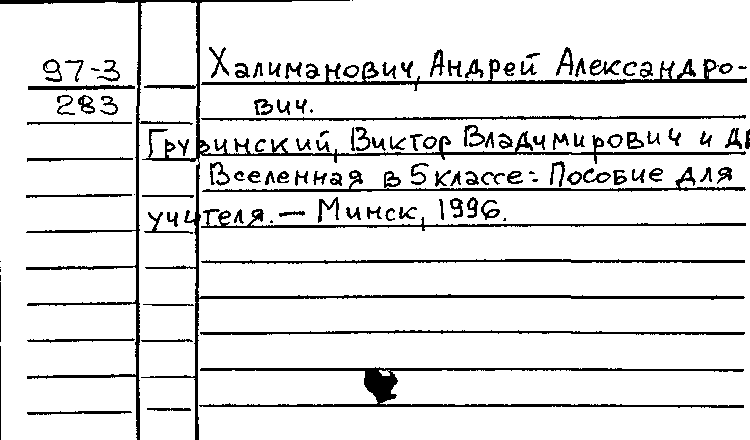 97-3 Халиманович, Андрей Александро-
283 вич.
Грузинский, Виктор Владимирович и др
Вселенная в 5 классе: Пособие для
учителя. — Минск, 1996.